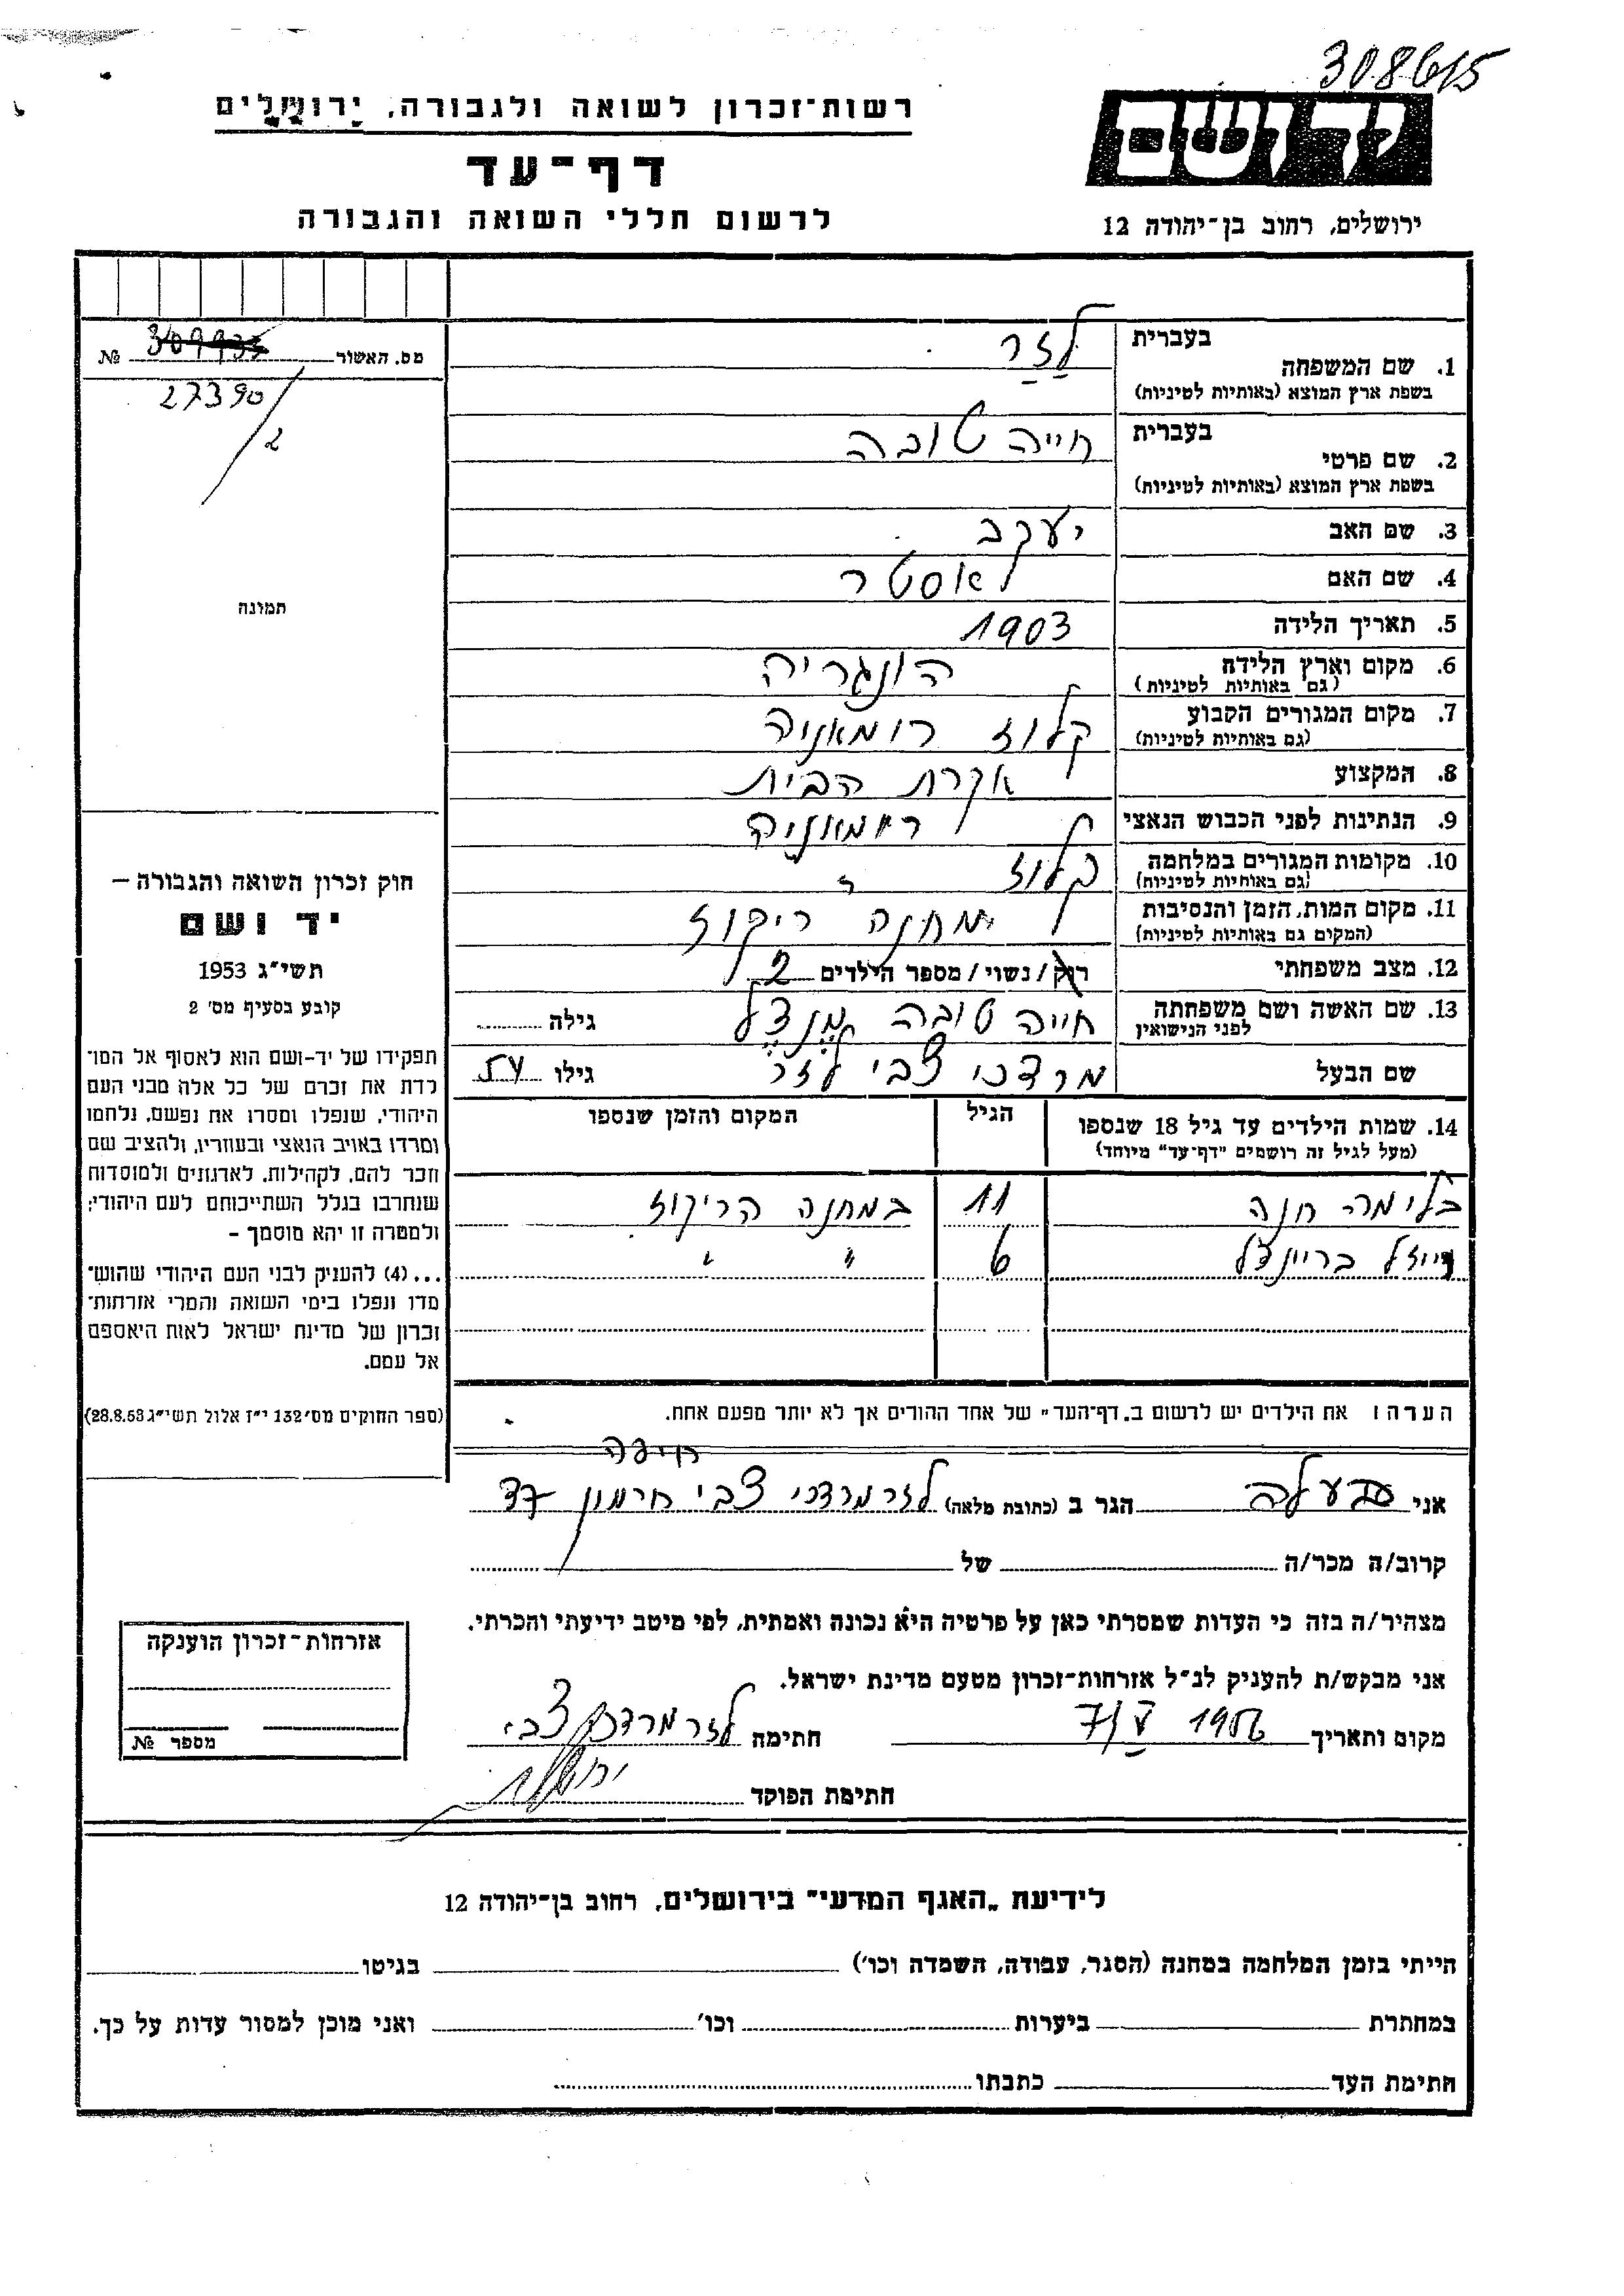 308615
רשות־זכרון לשואה ולגבורה, ירושלים
יד ושם
דף־עד
לרשום חללי השואה והגבורה
ירושלים, רחוב בן־יהודה 12
מס. האשור № 309935
27390/2
תמונה
בעברית לזר
1. שם המשפחה
בשפת ארץ המוצא (באותיות לטיניות)
בעברית חייה טובה
2. שם פרטי
בשפת ארץ המוצא (באותיות לטיניות)
3. שם האב יעקב
4. שם האם אסטר
5. תאריך הלידה 1903
6. מקום וארץ הלידה הונגריה
(גם באותיות לטיניות)
7. מקום המגורים הקבוע קלוז רומאניה
(גם באותיות לטיניות)
8. המקצוע אקרת הבית
9. הנתינות לפני הכבוש הנאצי רומאניה
10. מקומות המגורים במלחמה קלוז
(גם באותיות לטיניות)
11. מקום המות, הזמן והנסיבות מחנה ריקוז
(המקום גם באותיות לטיניות)
12. מצב משפחתי רוק/נשוי/מספר הילדים 2
13. שם האשה ושם משפחתה חייה טובה מנצל גילה
לפני הנישואין
שם הבעל מרדכי צבי לזר גילו 54
14. שמות הילדים עד גיל 18 שנספו הגיל המקום והזמן שנספו
(מעל לגיל זה רושמים "דף־עד" מיוחד)
בלימה חנה 11 במחנה הריקוז
רייזל בריינצל 6 " "
הערה: את הילדים יש לרשום ב„דף־העד" של אחד ההורים אך לא יותר מפעם אחת.
חוק זכרון השואה והגבורה –
יד ושם
תשי"ג 1953
קובע בסעיף מס' 2
תפקידו של יד-ושם הוא לאסוף אל המו־
לדת את זכרם של כל אלה מבני העם
היהודי, שנפלו ומסרו את נפשם, נלחמו
ומרדו באויב הנאצי ובעוזריו, ולהציב שם
וזכר להם, לקהילות, לארגונים ולמוסדות
שנחרבו בגלל השתייכותם לעם היהודי;
ולמטרה זו יהא מוסמך –
...(4) להעניק לבני העם היהודי שהוש־
מדו ונפלו בימי השואה והמרי אזרחות־
זכרון של מדינת ישראל לאות היאספם
אל עמם.
(ספר החוקים מס' 132 י"ז אלול תשי"ג 28.8.53)
חיפה
אני בעלה הגר ב (כתובת מלאה) לזר מרדכי צבי חרמון 37
קרוב/ה מכר/ה של
מצהיר/ה בזה כי העדות שמסרתי כאן על פרטיה היא נכונה ואמתית, לפי מיטב ידיעתי והכרתי.
אני מבקש/ת להעניק לנ"ל אזרחות־זכרון מטעם מדינת ישראל.
מקום ותאריך 7/V 1956 חתימה לזר מרדכי צבי
חתימת הפוקד
אזרחות־זכרון הוענקה
מספר №
לידיעת „האגף המדעי" בירושלים, רחוב בן־יהודה 12
הייתי בזמן המלחמה במחנה (הסגר, עבודה, השמדה וכו') בגיטו
במחתרת ביערות וכו' ואני מוכן למסור עדות על כך.
חתימת העד כתבתו